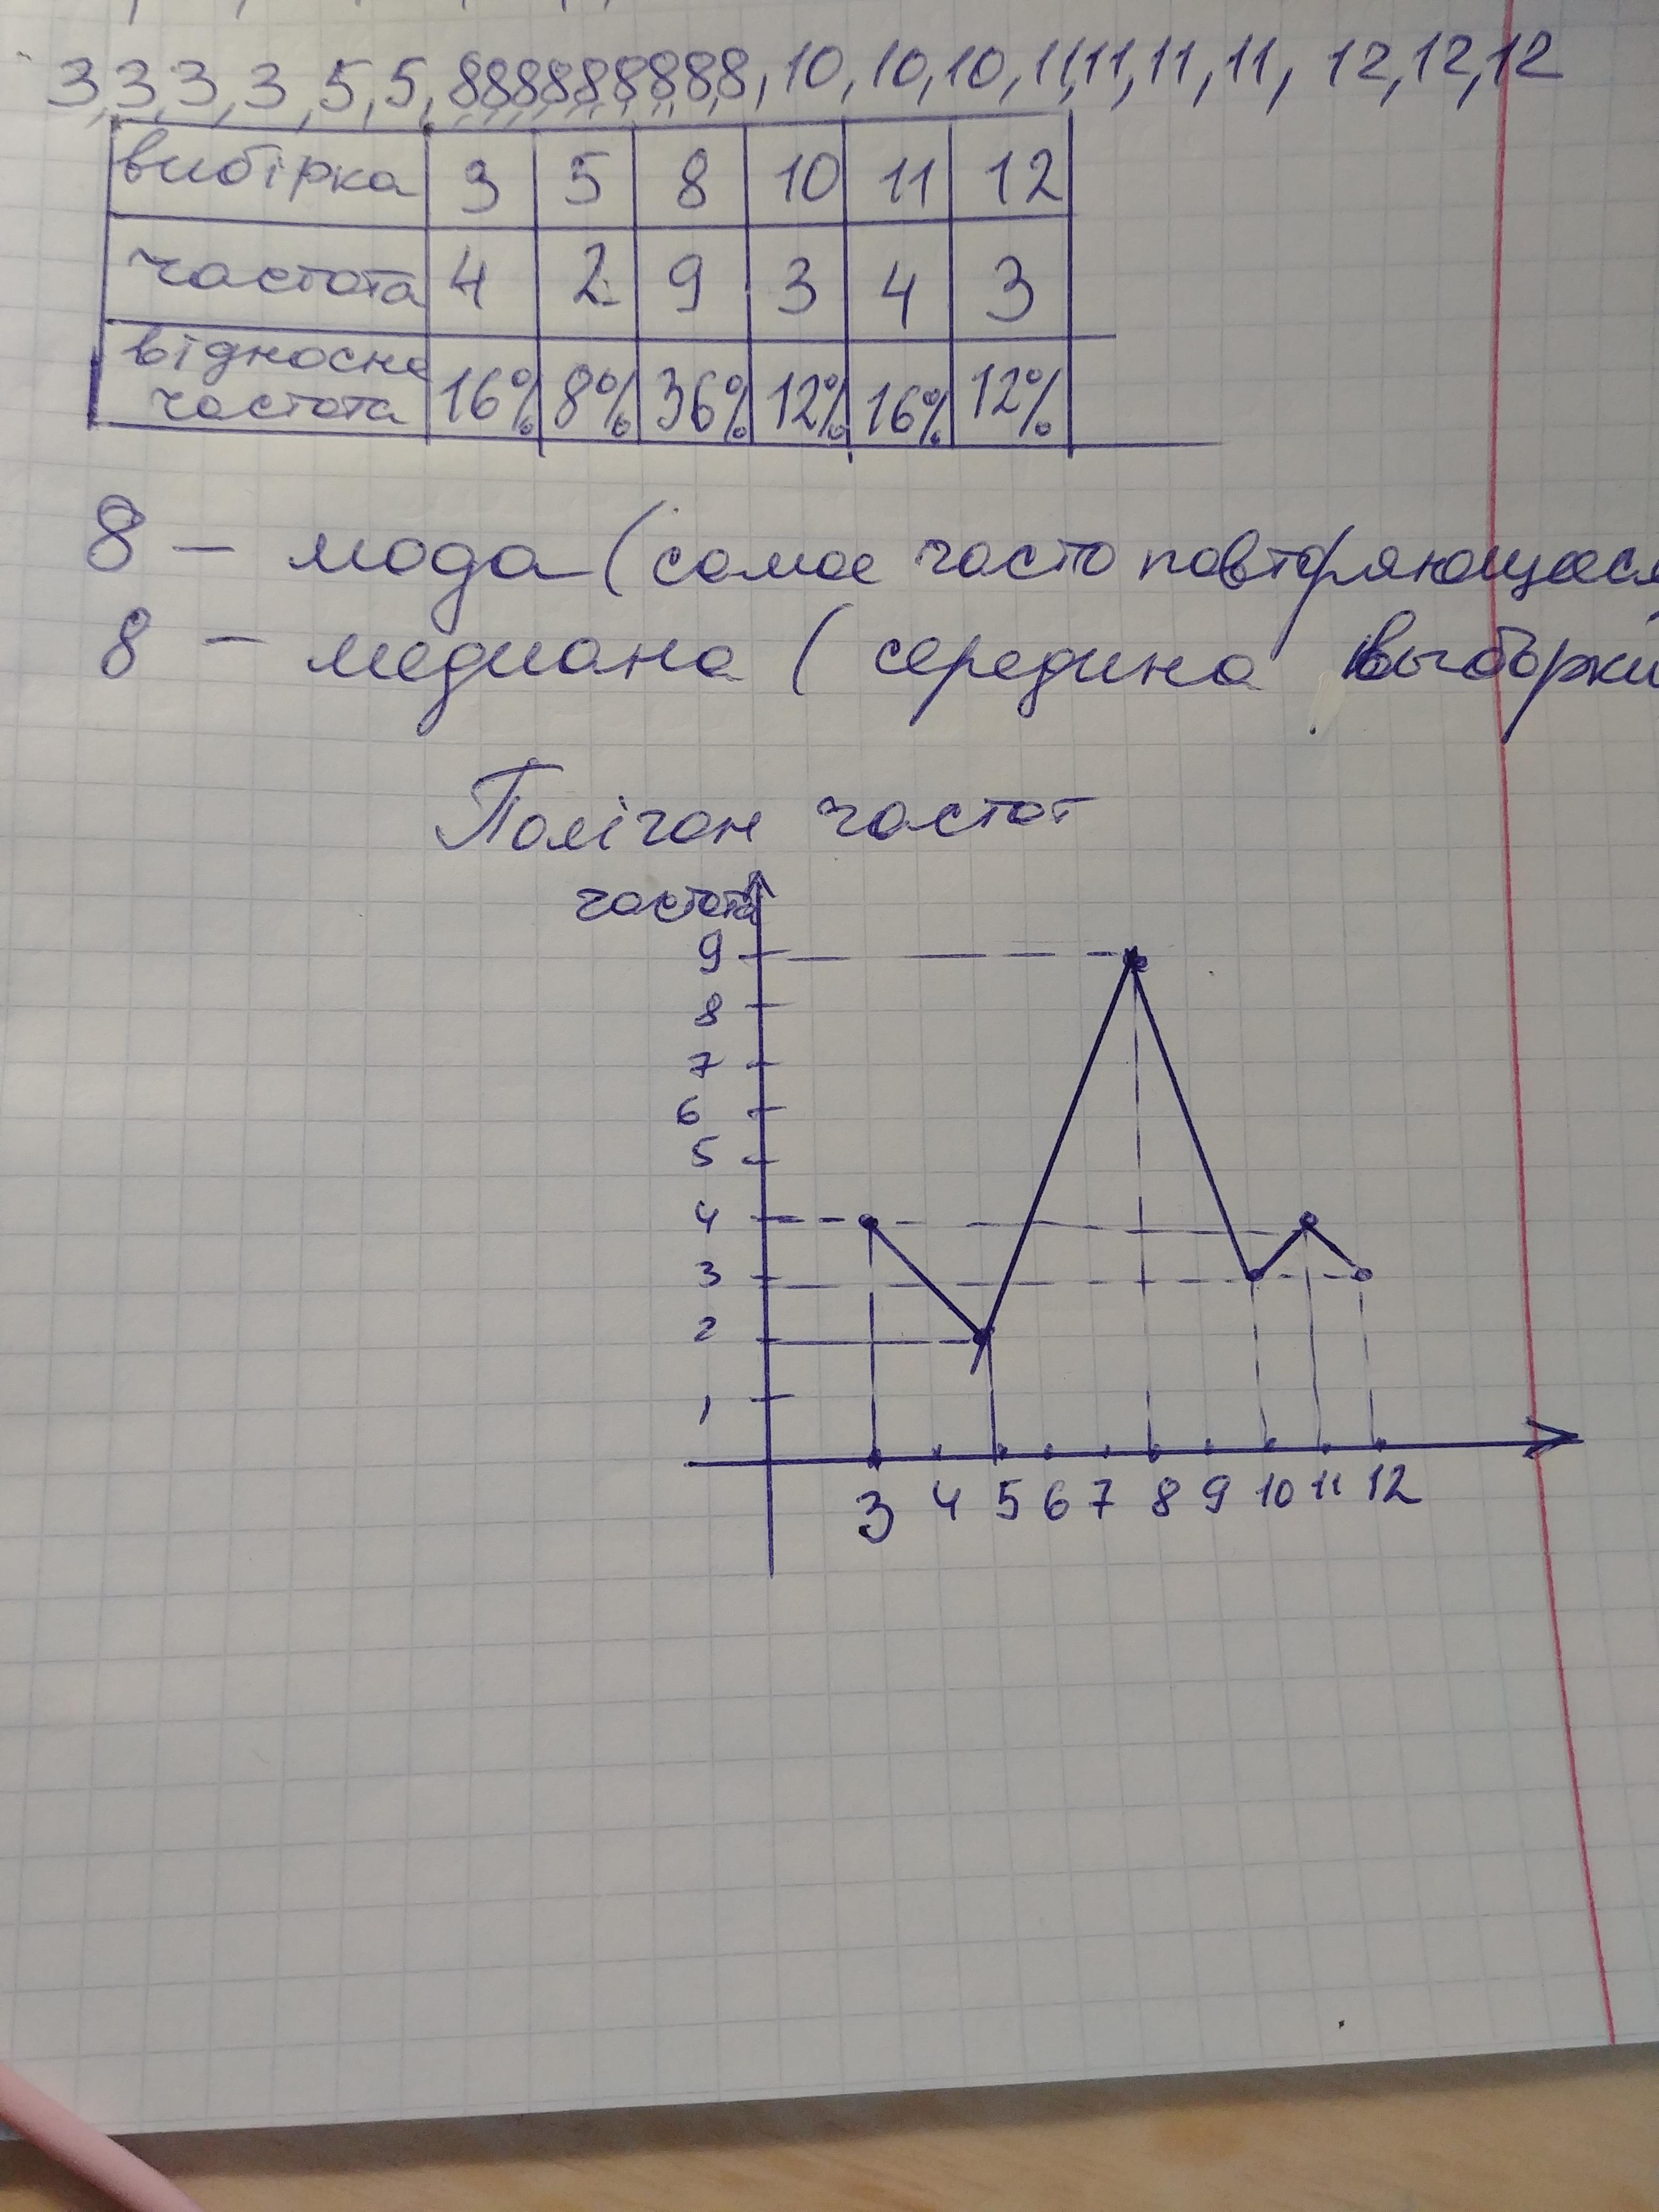 3, 3, 3, 3, 5, 5, 8,8,8,8,8,8,8,8,8, 10, 10, 10, 11, 11, 11, 11, 12, 12, 12
вибірка 3 5 8 10 11 12
частота 4 2 9 3 4 3
відносна
частота 16% 8% 36% 12% 16% 12%
8 – мода (самое часто повторяющееся
8 – медиана ( середина выбърки
Полігон частот
частота
9
8
7
6
5
4
3
2
1
3 4 5 6 7 8 9 10 11 12